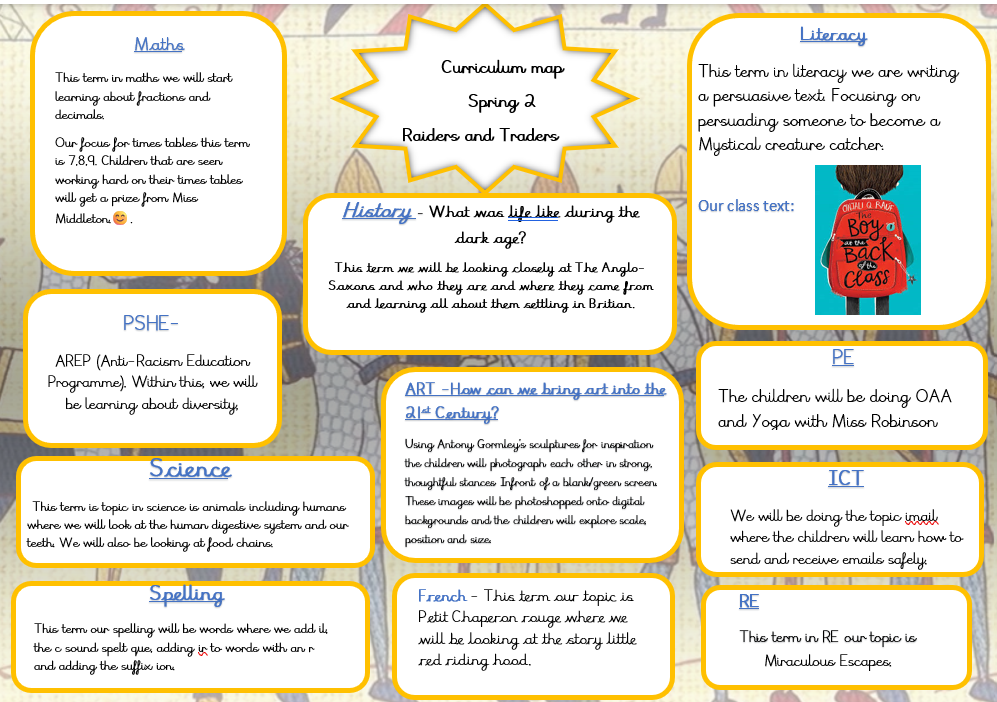 Curriculum map
Spring 2
Raiders and Traders
Maths
This term in maths we will start
learning about fractions and
decimals.
Our focus for times tables this term
is 7,8,9. Children that are seen
working hard on their times tables
will get a prize from Miss
Middleton.😊 .
Literacy
This term in literacy we are writing
a persuasive text. Focusing on
persuading someone to become a
Mystical creature catcher.
Our class text:
ONJALI Q. RAUF
The
Boy
at the
Back
of the
Class
History - What was life like during the
dark age?
This term we will be looking closely at The Anglo-
Saxons and who they are and where they came from
and learning all about them settling in Britian.
PSHE-
AREP (Anti-Racism Education
Programme). Within this, we will
be learning about diversity,
ART -How can we bring art into the
21st Century?
Using Antony Gormley's sculptures for inspiration
the children will photograph each other in strong,
thoughtful stances. Infront of a blank/green screen.
These images will be photoshopped onto digital
backgrounds and the children will explore scale,
position and size.
PE
The children will be doing OAA
and Yoga with Miss Robinson
Science
This term is topic in science is animals including humans
where we will look at the human digestive system and our
teeth. We will also be looking at food chains.
ICT
We will be doing the topic imail
where the children will learn how to
send and receive emails safely.
Spelling
This term our spelling will be words where we add il,
the c sound spelt que, adding ir to words with an r
and adding the suffix ion.
French - This term our topic is
Petit Chaperon rouge where we
will be looking at the story little
red riding hood.
RE
This term in RE our topic is
Miraculous Escapes.